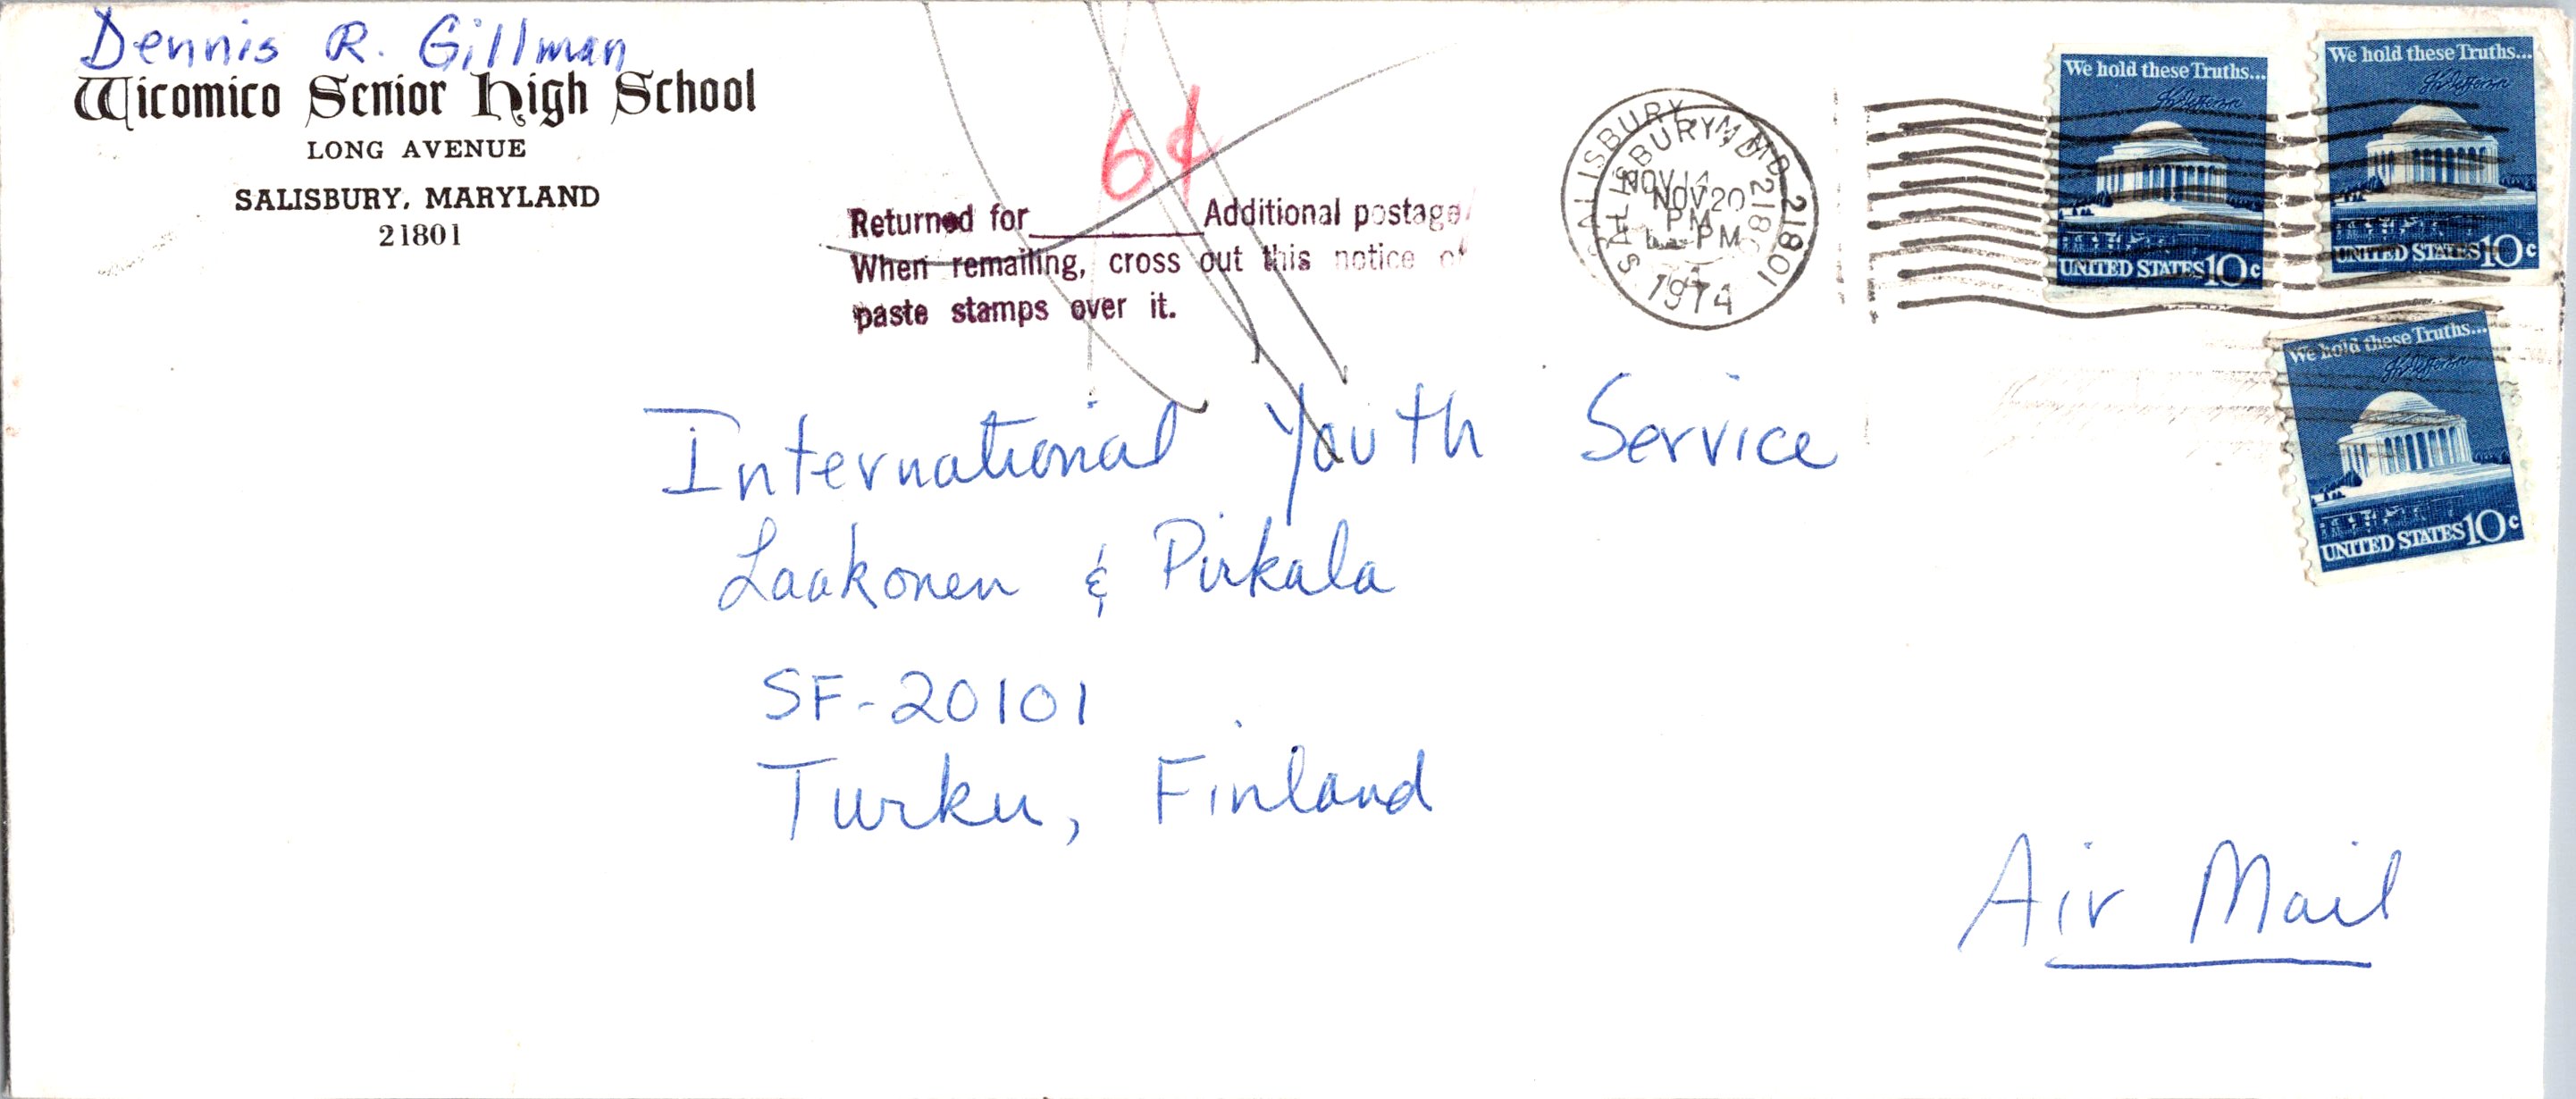 Dennis R. Gillman
Wicomico Senior High School
LONG AVENUE
SALISBURY, MARYLAND
21801
6¢
Returned for ________ Additional postage
When remailing, cross out this notice or
paste stamps over it.
SALISBURY, MD 21801
NOV 20
PM
1974
SALISBURY, MD 21801
NOV
PM
We hold these Truths...
Th Jefferson
UNITED STATES 10c
We hold these Truths...
Th Jefferson
UNITED STATES 10c
We hold these Truths...
Th Jefferson
UNITED STATES 10c
International Youth Service
Laakonen & Pirkala
SF-20101
Turku, Finland
Air Mail